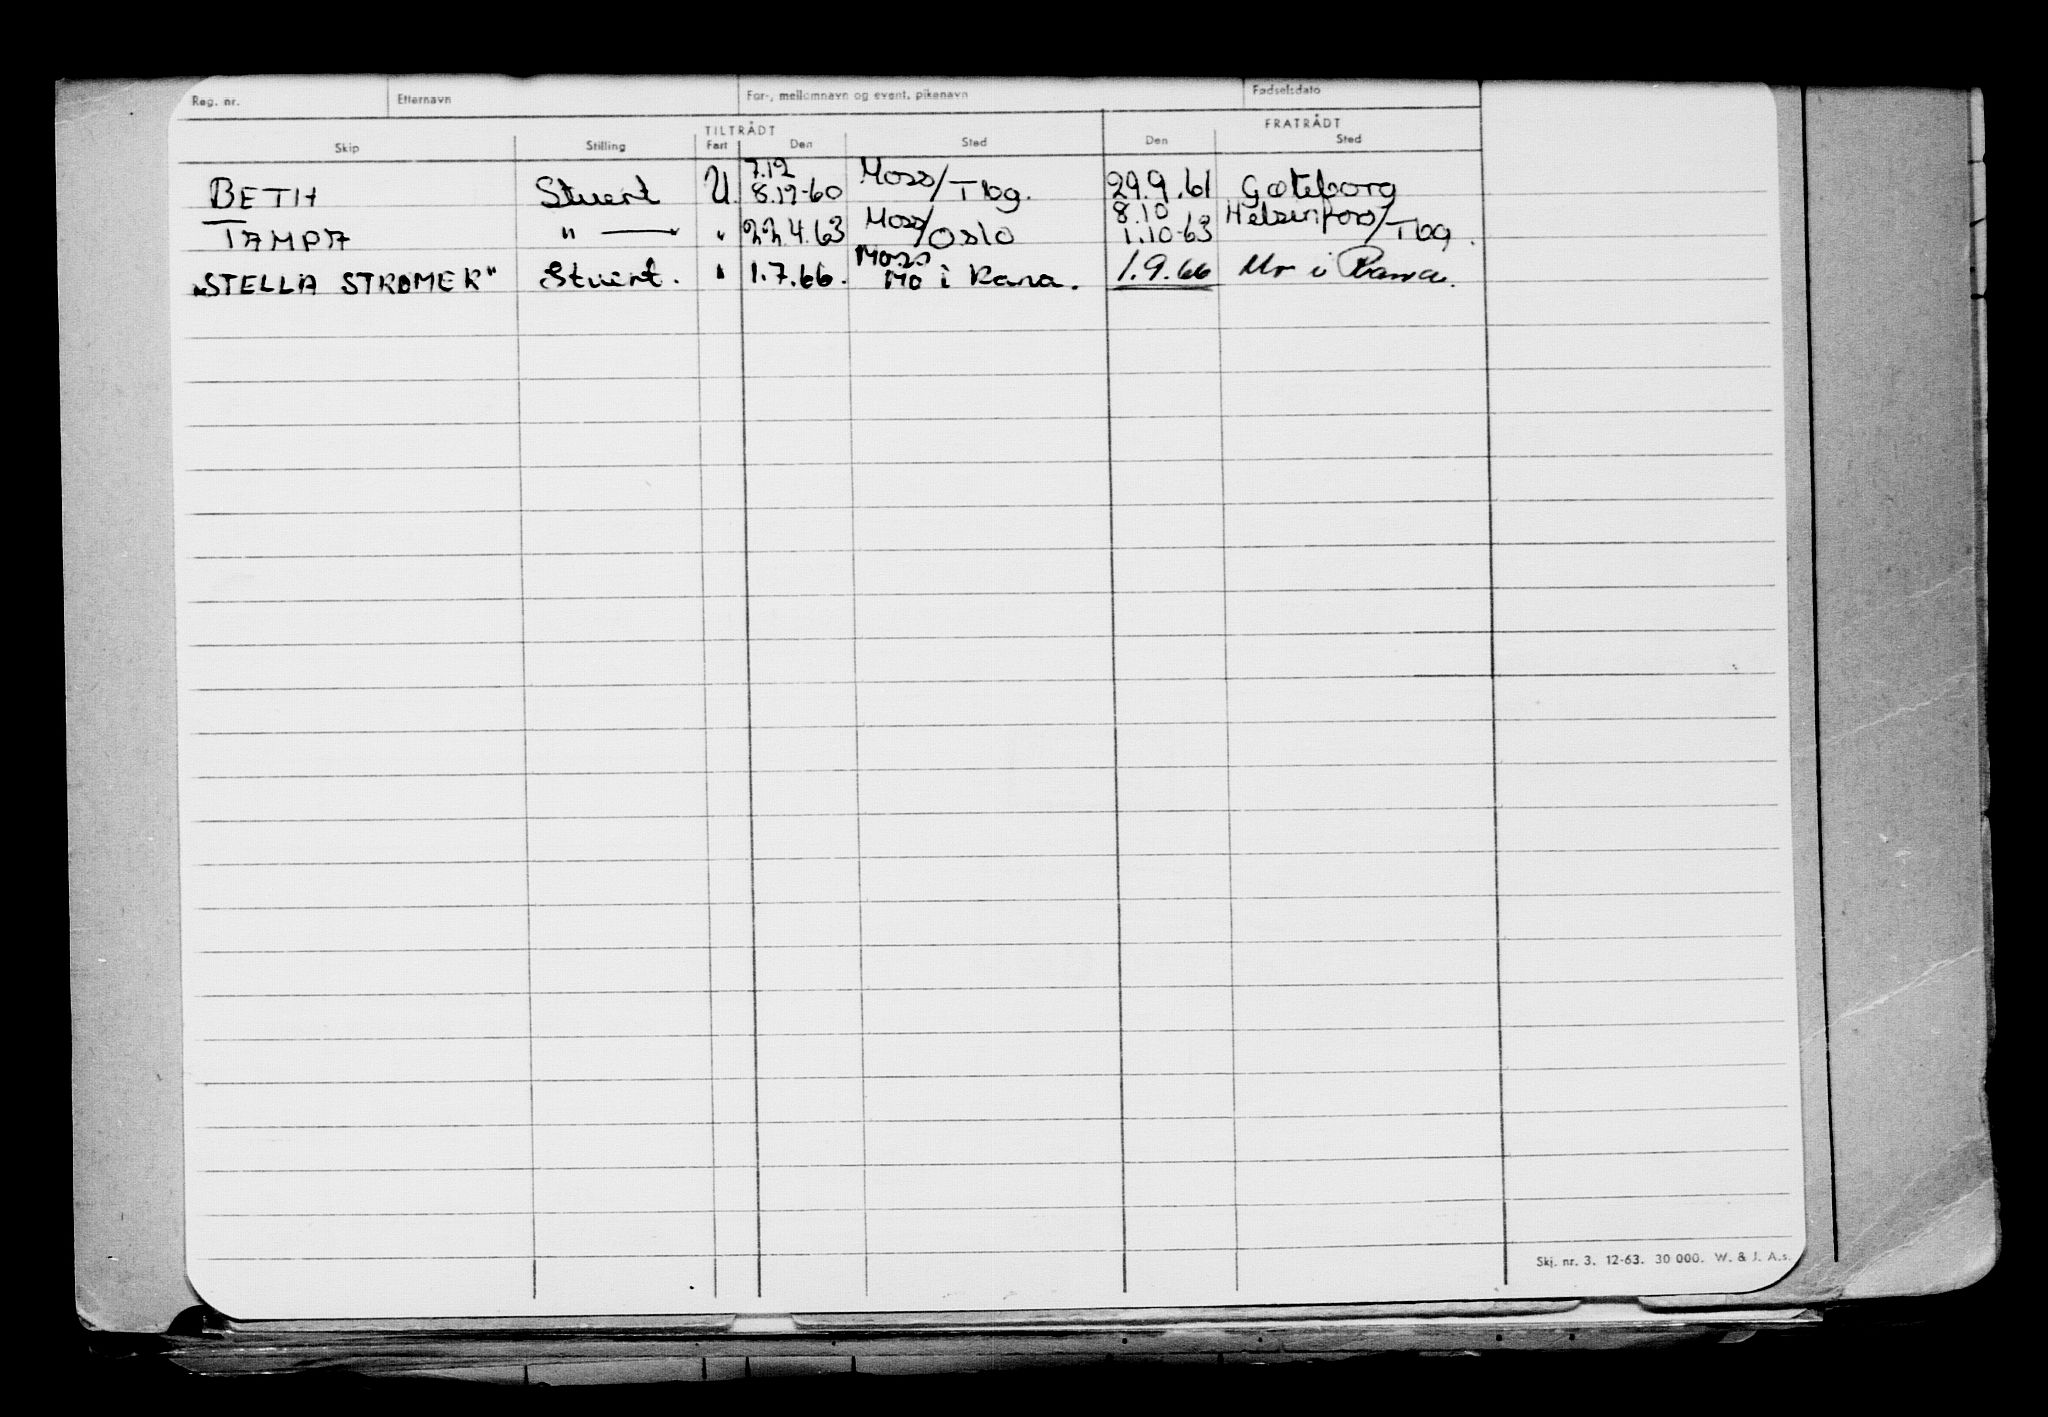 Reg. nr. Etternavn For-, mellomnavn og event. pikenavn Fødselsdato
TILTRÅDT FRATRÅDT
Skip Stilling Fart Den Sted Den Sted
7.12
BETH Stuert U. 8.12-60 Moss/Tbg. 29.9.61 Gøteborg
8.10
TAMPA " — " 22.4.63 Moss/Oslo 1.10-63 Helsinfors/Tbg.
Moss
"STELLA STRØMER" Stuert. " 1.7.66. Mo i Rana. 1.9.66 Mo i Rana.
Skj. nr. 3. 12-63. 30 000. W. & J. A.s.